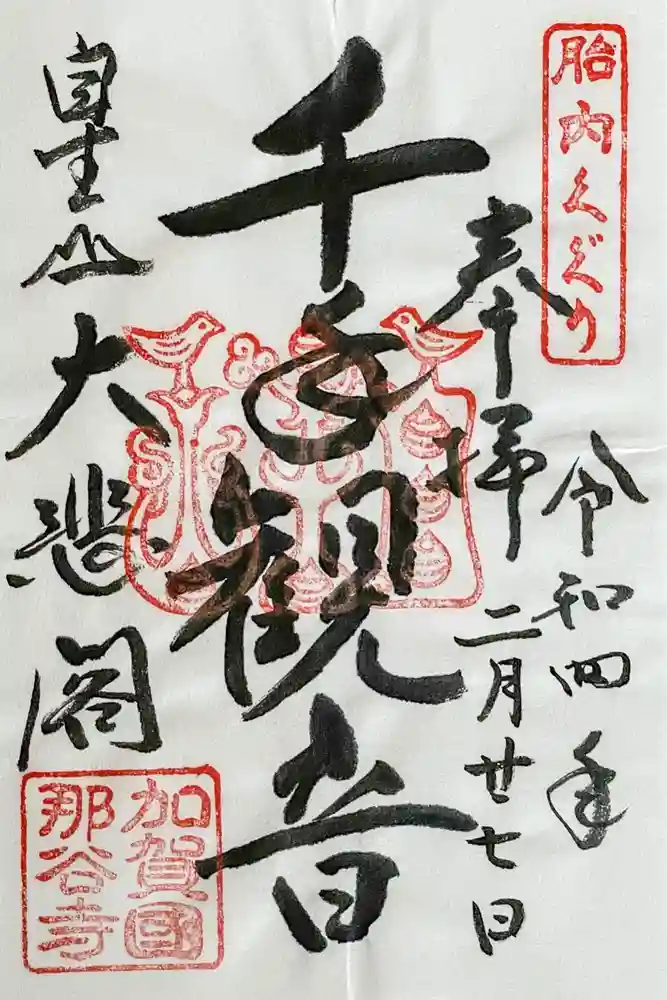 胎内くぐり
奉拝
令和四年
二月廿七日
千手観音
自生山大悲閣
加賀國
那谷寺